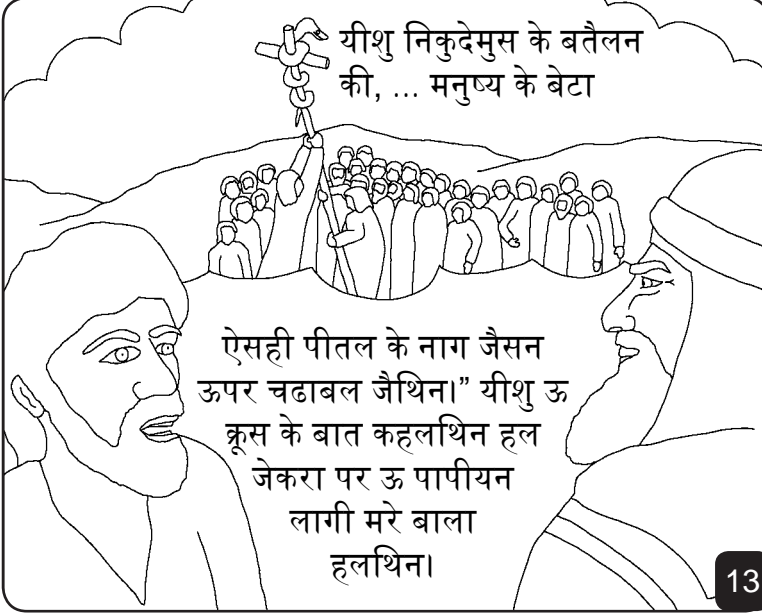 यीशु निकुदेमुस के बतैलन
की, ... मनुष्य के बेटा
ऐसही पीतल के नाग जैसन
ऊपर चढाबल जैथिन।” यीशु ऊ
क्रूस के बात कहलथिन हल
जेकरा पर ऊ पापीयन
लागी मरे बाला
हलथिन।
13